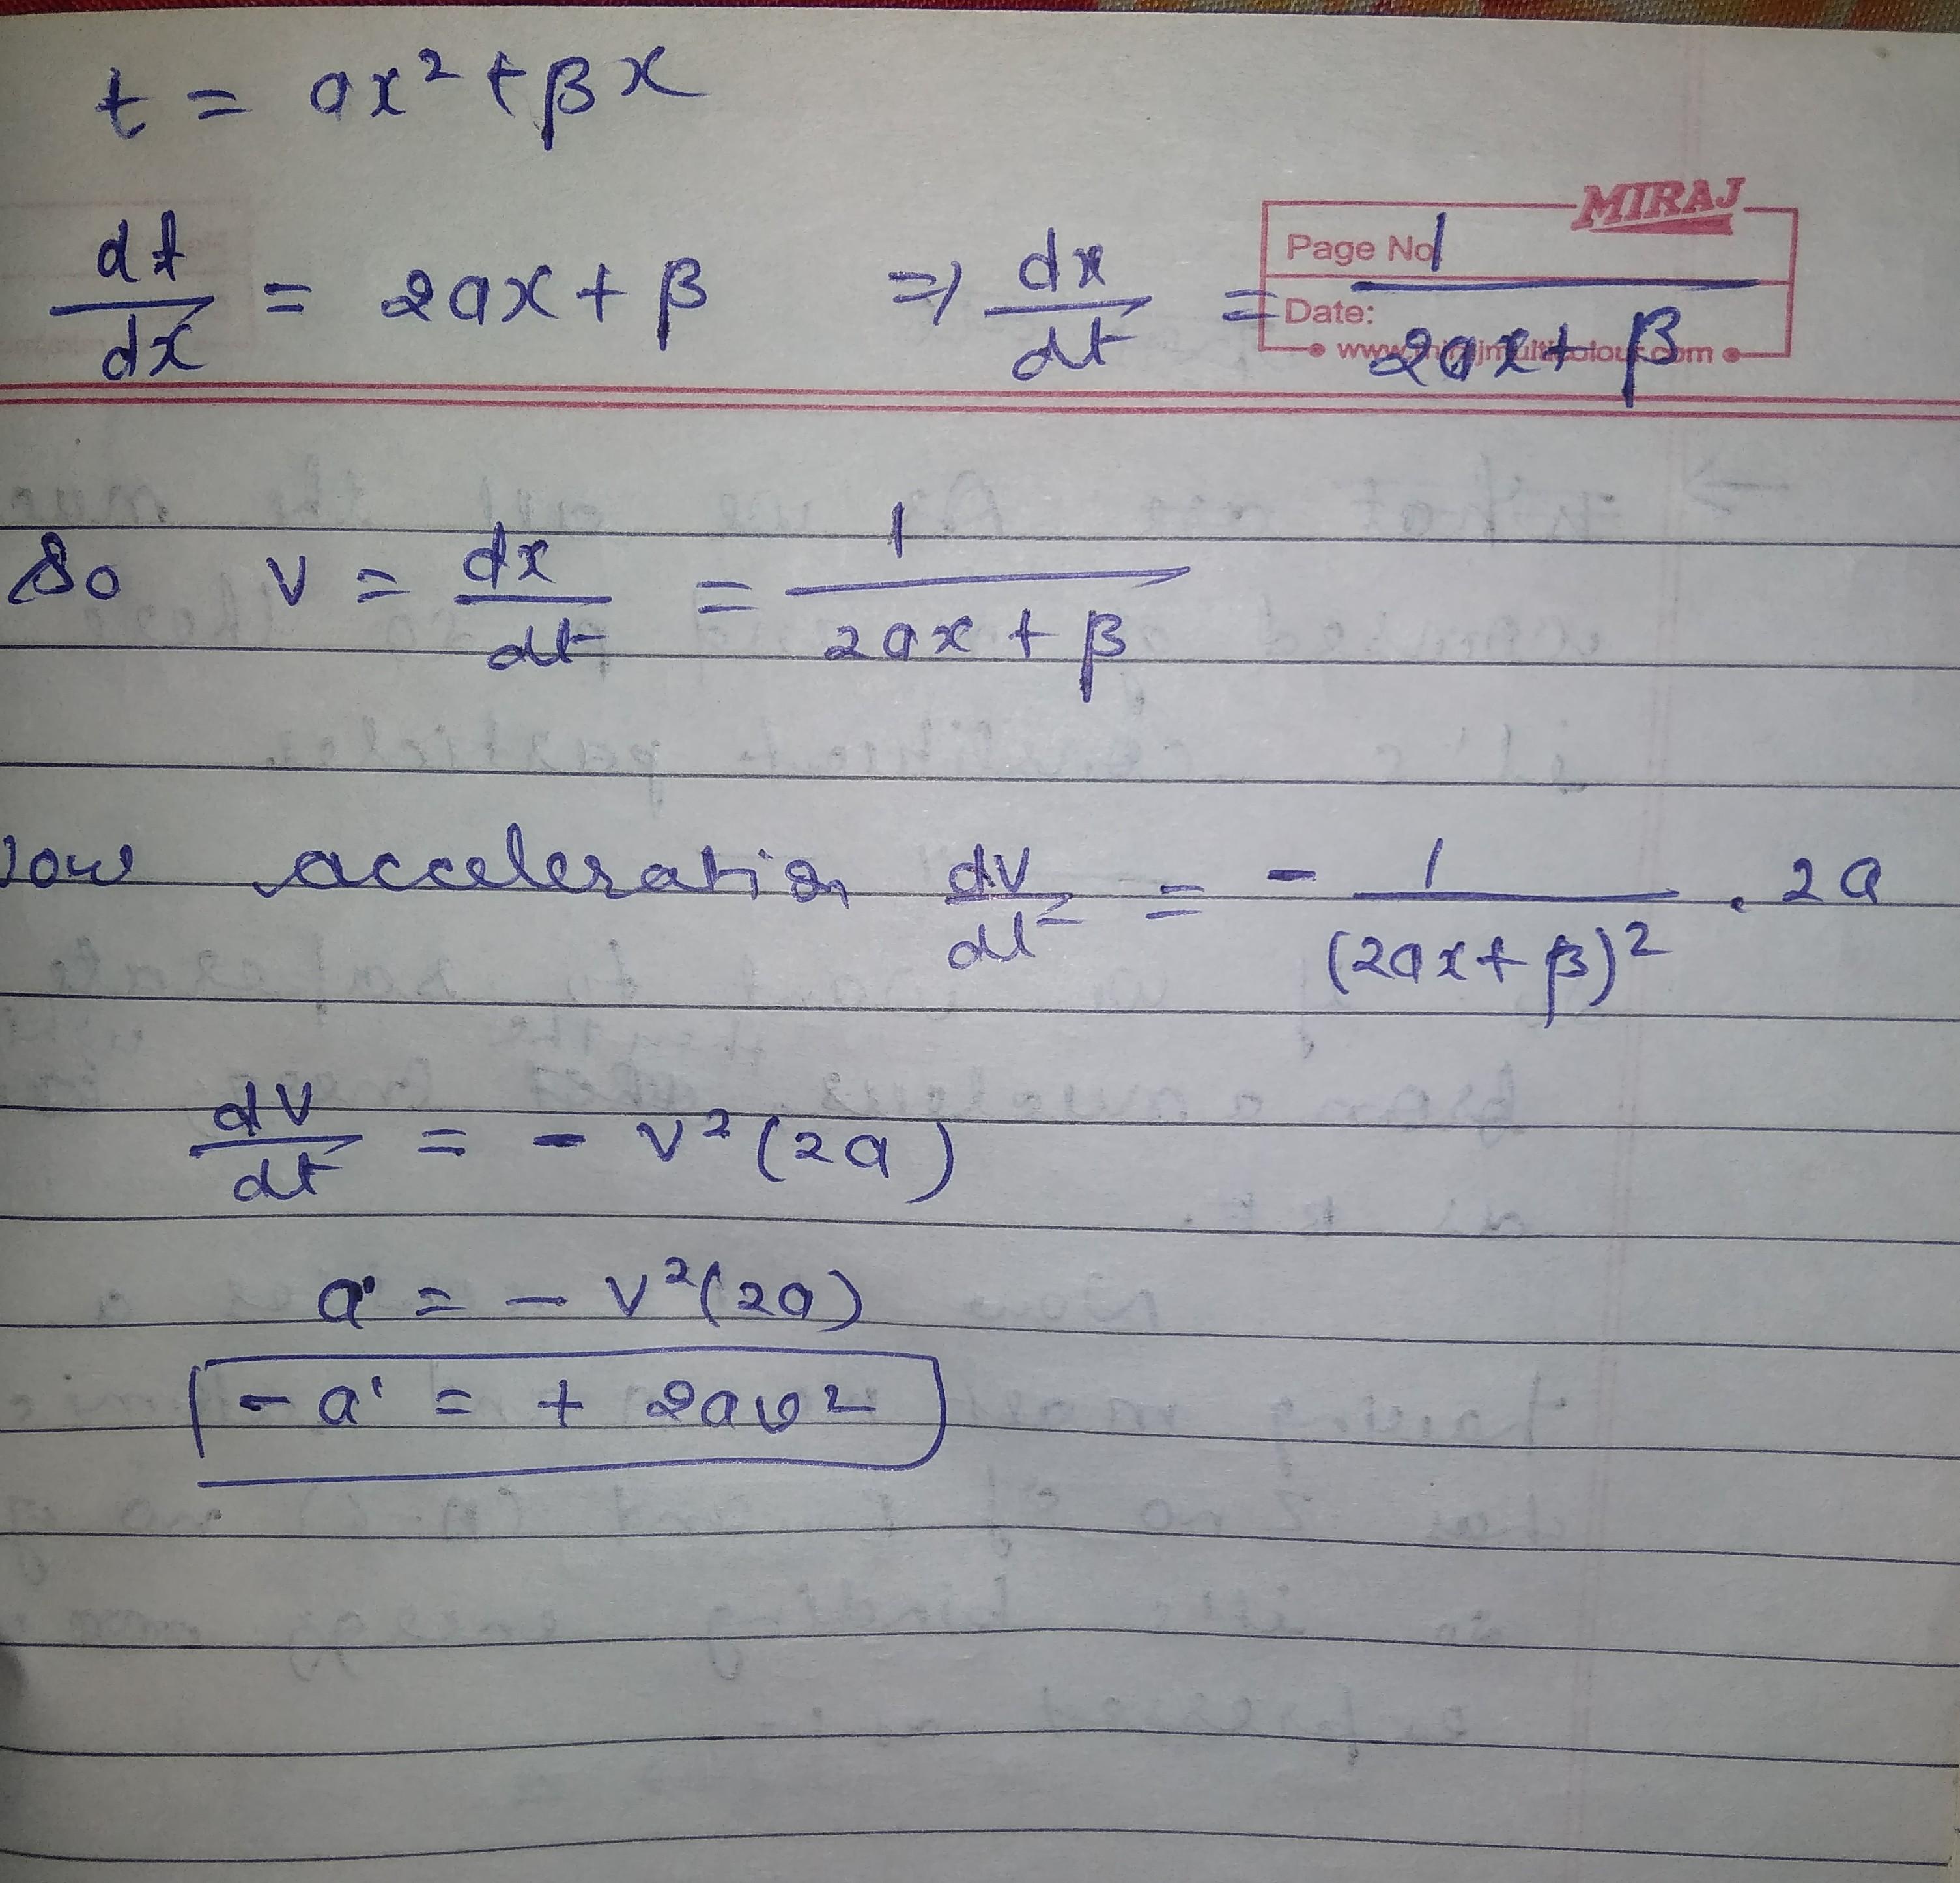 t = ax² + βx
MIRAJ
Page No
Date:
dt/dx = 2ax + β ⇒ dx/dt = 1/(2ax + β)
So v = dx/dt = 1/(2ax + β)
ow acceleration dv/dt = - 1/(2ax + β)² . 2a
dv/dt = - v²(2a)
a' = - v²(2a)
- a' = + 2av²